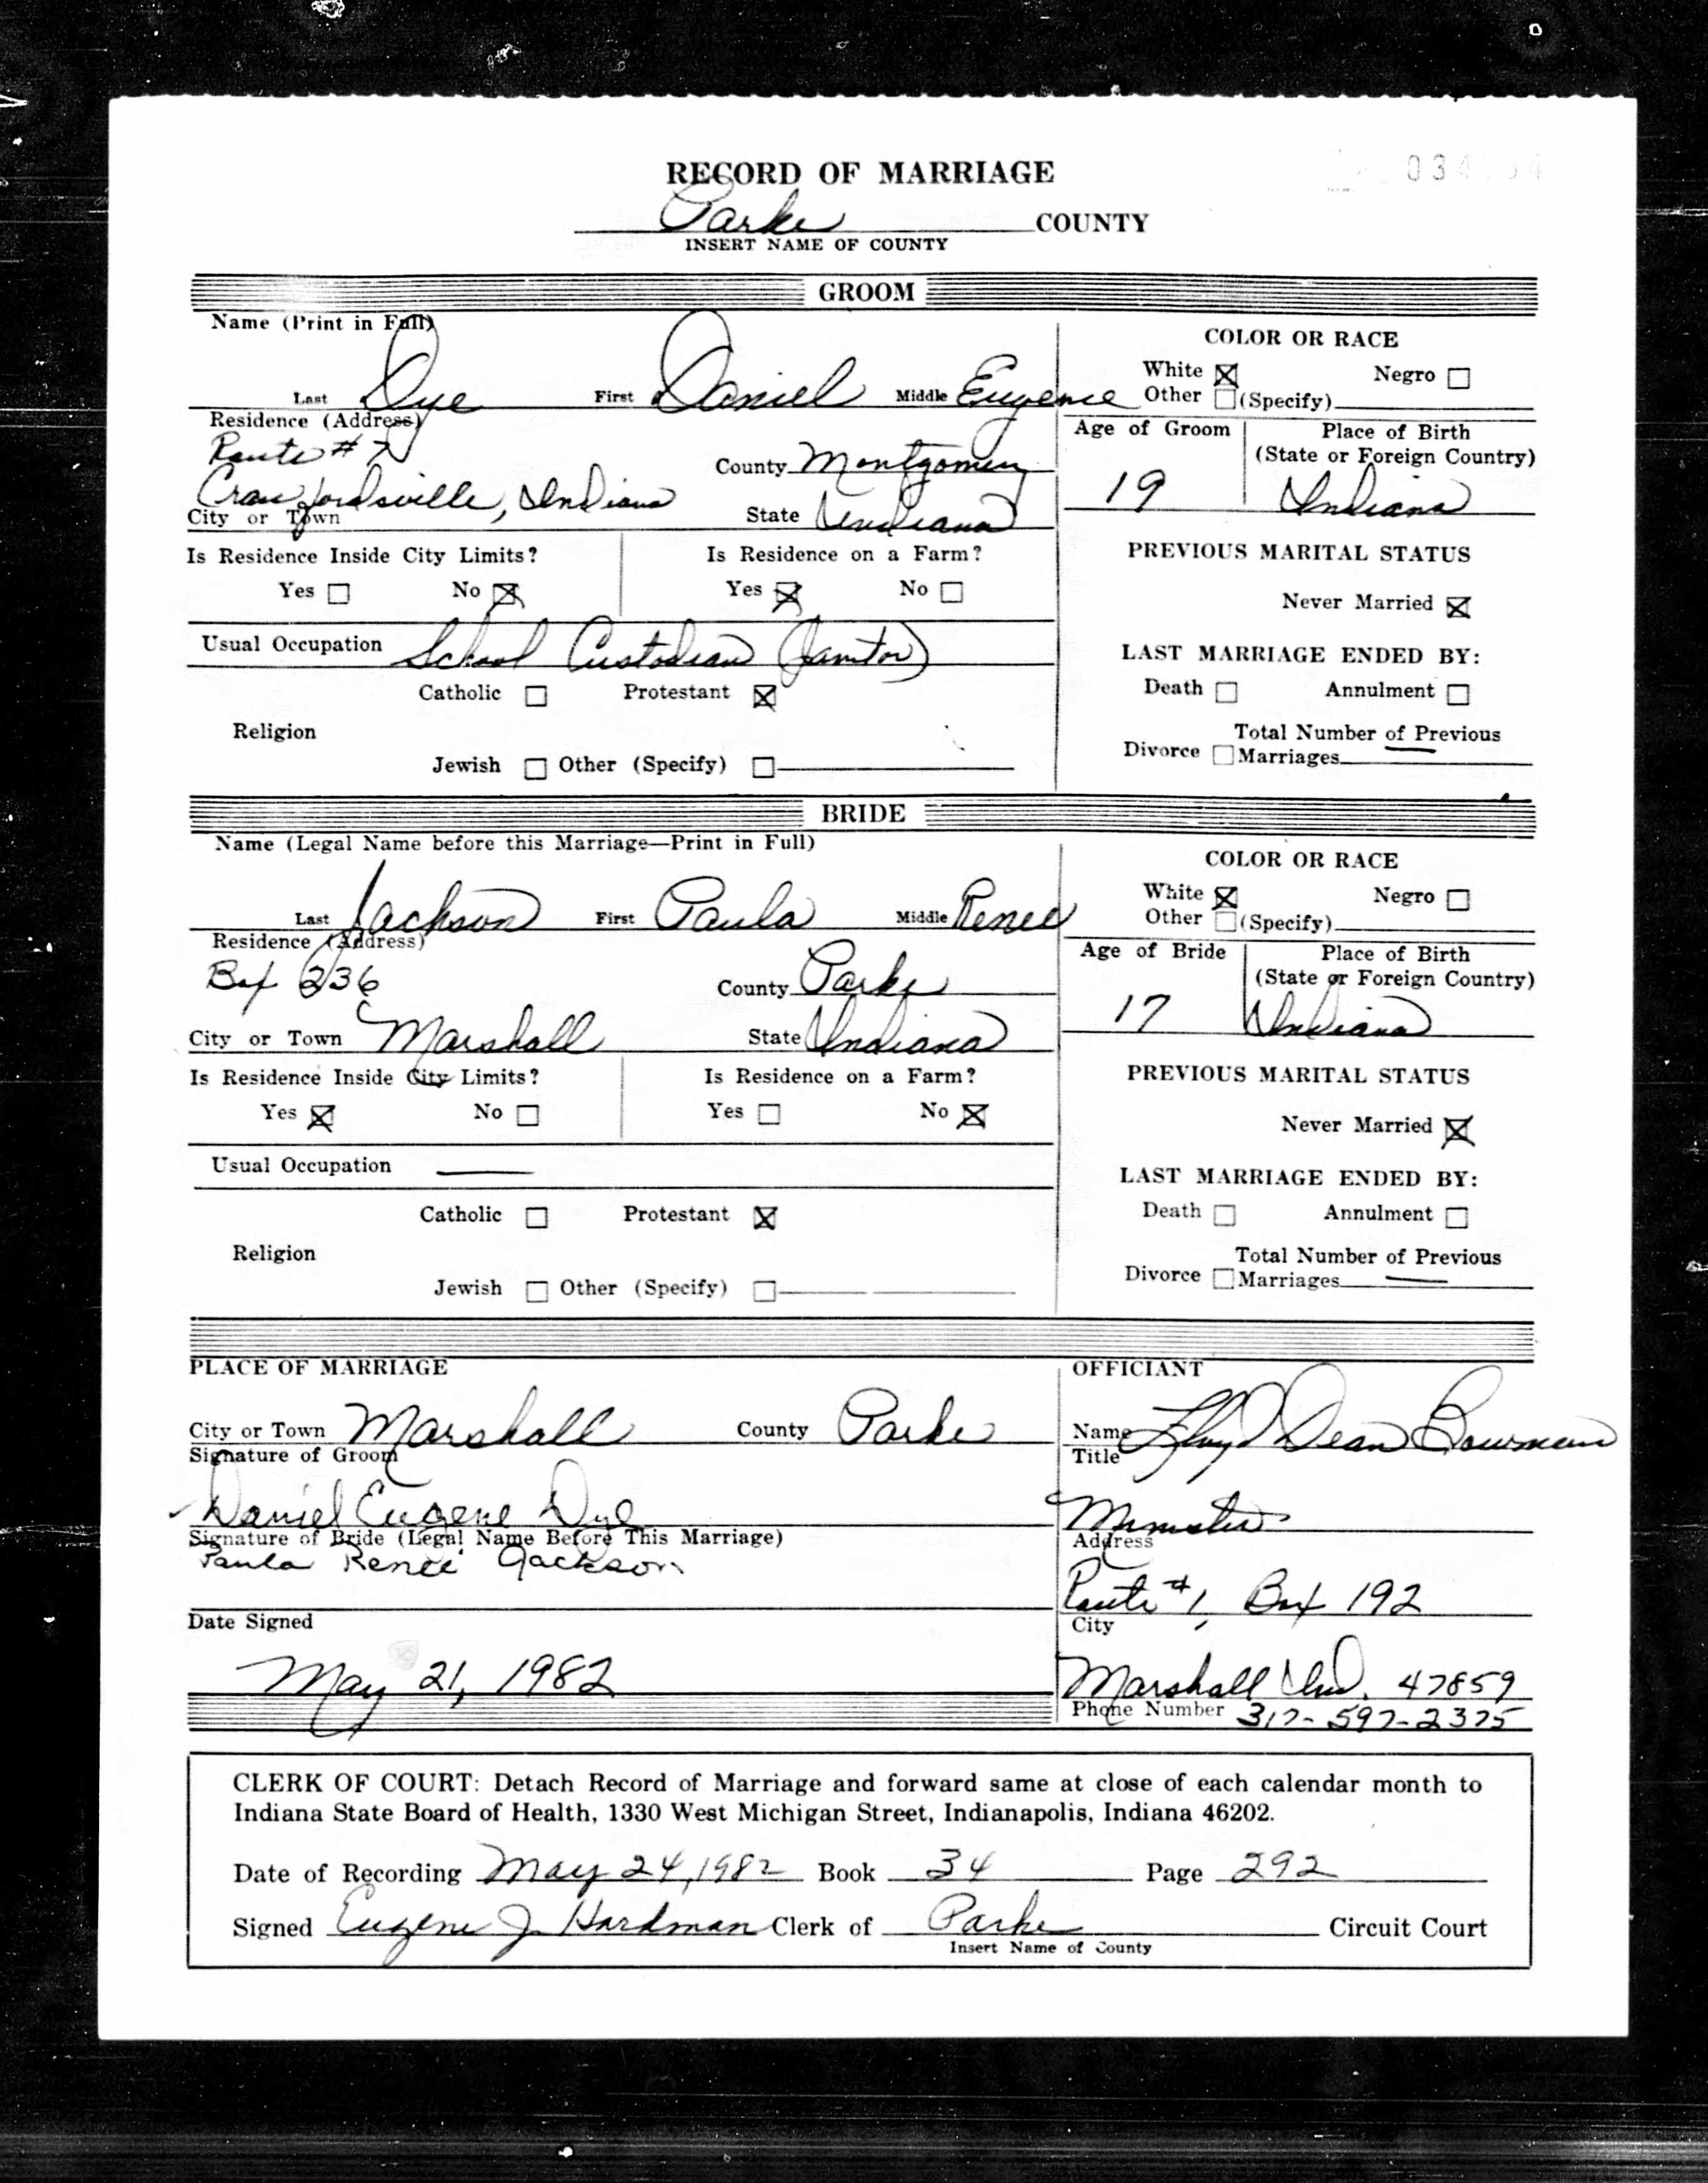 RECORD OF MARRIAGE
Parke COUNTY
INSERT NAME OF COUNTY
GROOM
Name (Print in Full)
Last Dye First Daniel Middle Eugene
Residence (Address)
Route # 7
County Montgomery
Crawfordsville, Indiana
City or Town
State Indiana
Is Residence Inside City Limits? Is Residence on a Farm?
Yes ☐ No ☒ Yes ☒ No ☐
Usual Occupation School Custodian (Janitor)
Catholic ☐ Protestant ☒
Religion
Jewish ☐ Other (Specify) ☐
COLOR OR RACE
White ☒ Negro ☐
Other ☐ (Specify)
Age of Groom Place of Birth
(State or Foreign Country)
19 Indiana
PREVIOUS MARITAL STATUS
Never Married ☒
LAST MARRIAGE ENDED BY:
Death ☐ Annulment ☐
Total Number of Previous
Divorce ☐ Marriages —
BRIDE
Name (Legal Name before this Marriage—Print in Full)
Last Jackson First Paula Middle Renee
Residence (Address)
Box 236 County Parke
City or Town Marshall State Indiana
Is Residence Inside City Limits? Is Residence on a Farm?
Yes ☒ No ☐ Yes ☐ No ☒
Usual Occupation —
Catholic ☐ Protestant ☒
Religion
Jewish ☐ Other (Specify) ☐
COLOR OR RACE
White ☒ Negro ☐
Other ☐ (Specify)
Age of Bride Place of Birth
(State or Foreign Country)
17 Indiana
PREVIOUS MARITAL STATUS
Never Married ☒
LAST MARRIAGE ENDED BY:
Death ☐ Annulment ☐
Total Number of Previous
Divorce ☐ Marriages —
PLACE OF MARRIAGE
City or Town Marshall County Parke
Signature of Groom
Daniel Eugene Dye
Signature of Bride (Legal Name Before This Marriage)
Paula Renee Jackson
Date Signed
May 21, 1982
OFFICIANT
Name Lloyd Dean Bowman
Title
Minister
Address
Route #1, Box 192
City
Marshall Ind. 47859
Phone Number 317-597-2375
CLERK OF COURT: Detach Record of Marriage and forward same at close of each calendar month to
Indiana State Board of Health, 1330 West Michigan Street, Indianapolis, Indiana 46202.
Date of Recording May 24, 1982 Book 34 Page 292
Signed Eugene J Hardman Clerk of Parke Circuit Court
Insert Name of County